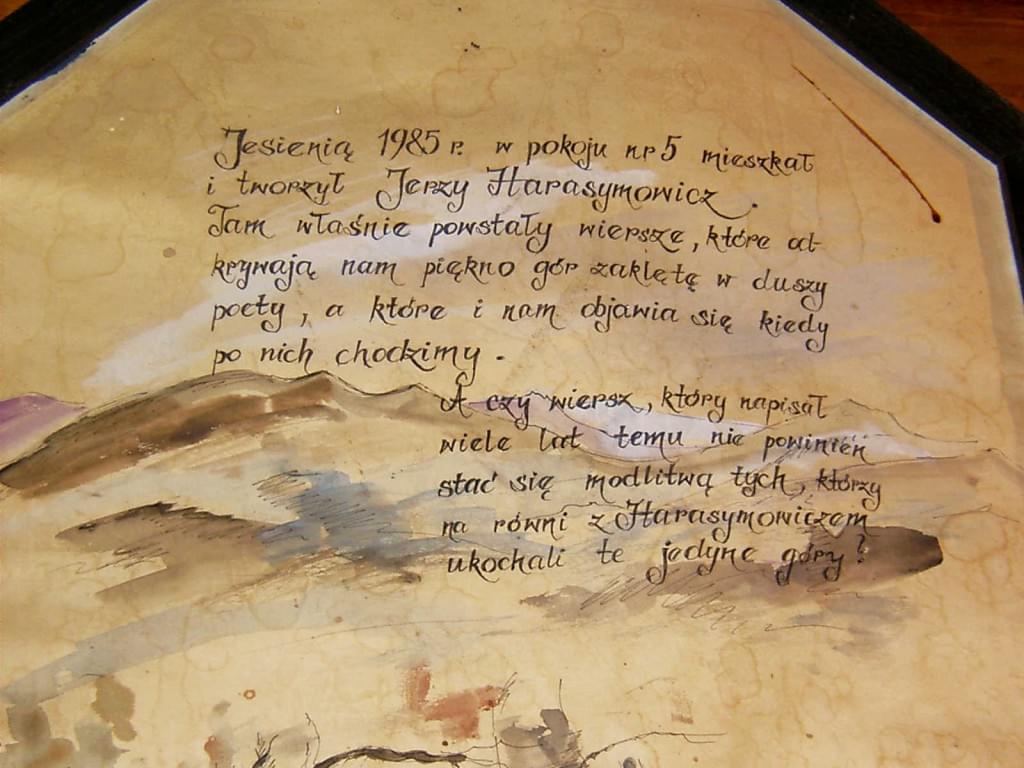 Jesienią 1985 r. w pokoju nr 5 mieszkał
i tworzył Jerzy Harasymowicz.
Tam właśnie powstały wiersze, które od-
krywają nam piękno gór zaklętę w duszy
poety, a które i nam objawia się kiedy
po nich chodzimy.
A czy wiersz, który napisał
wiele lat temu nie powinień
stać się modlitwą tych, którzy
na równi z Harasymowiczem
ukochali te jedyne góry?